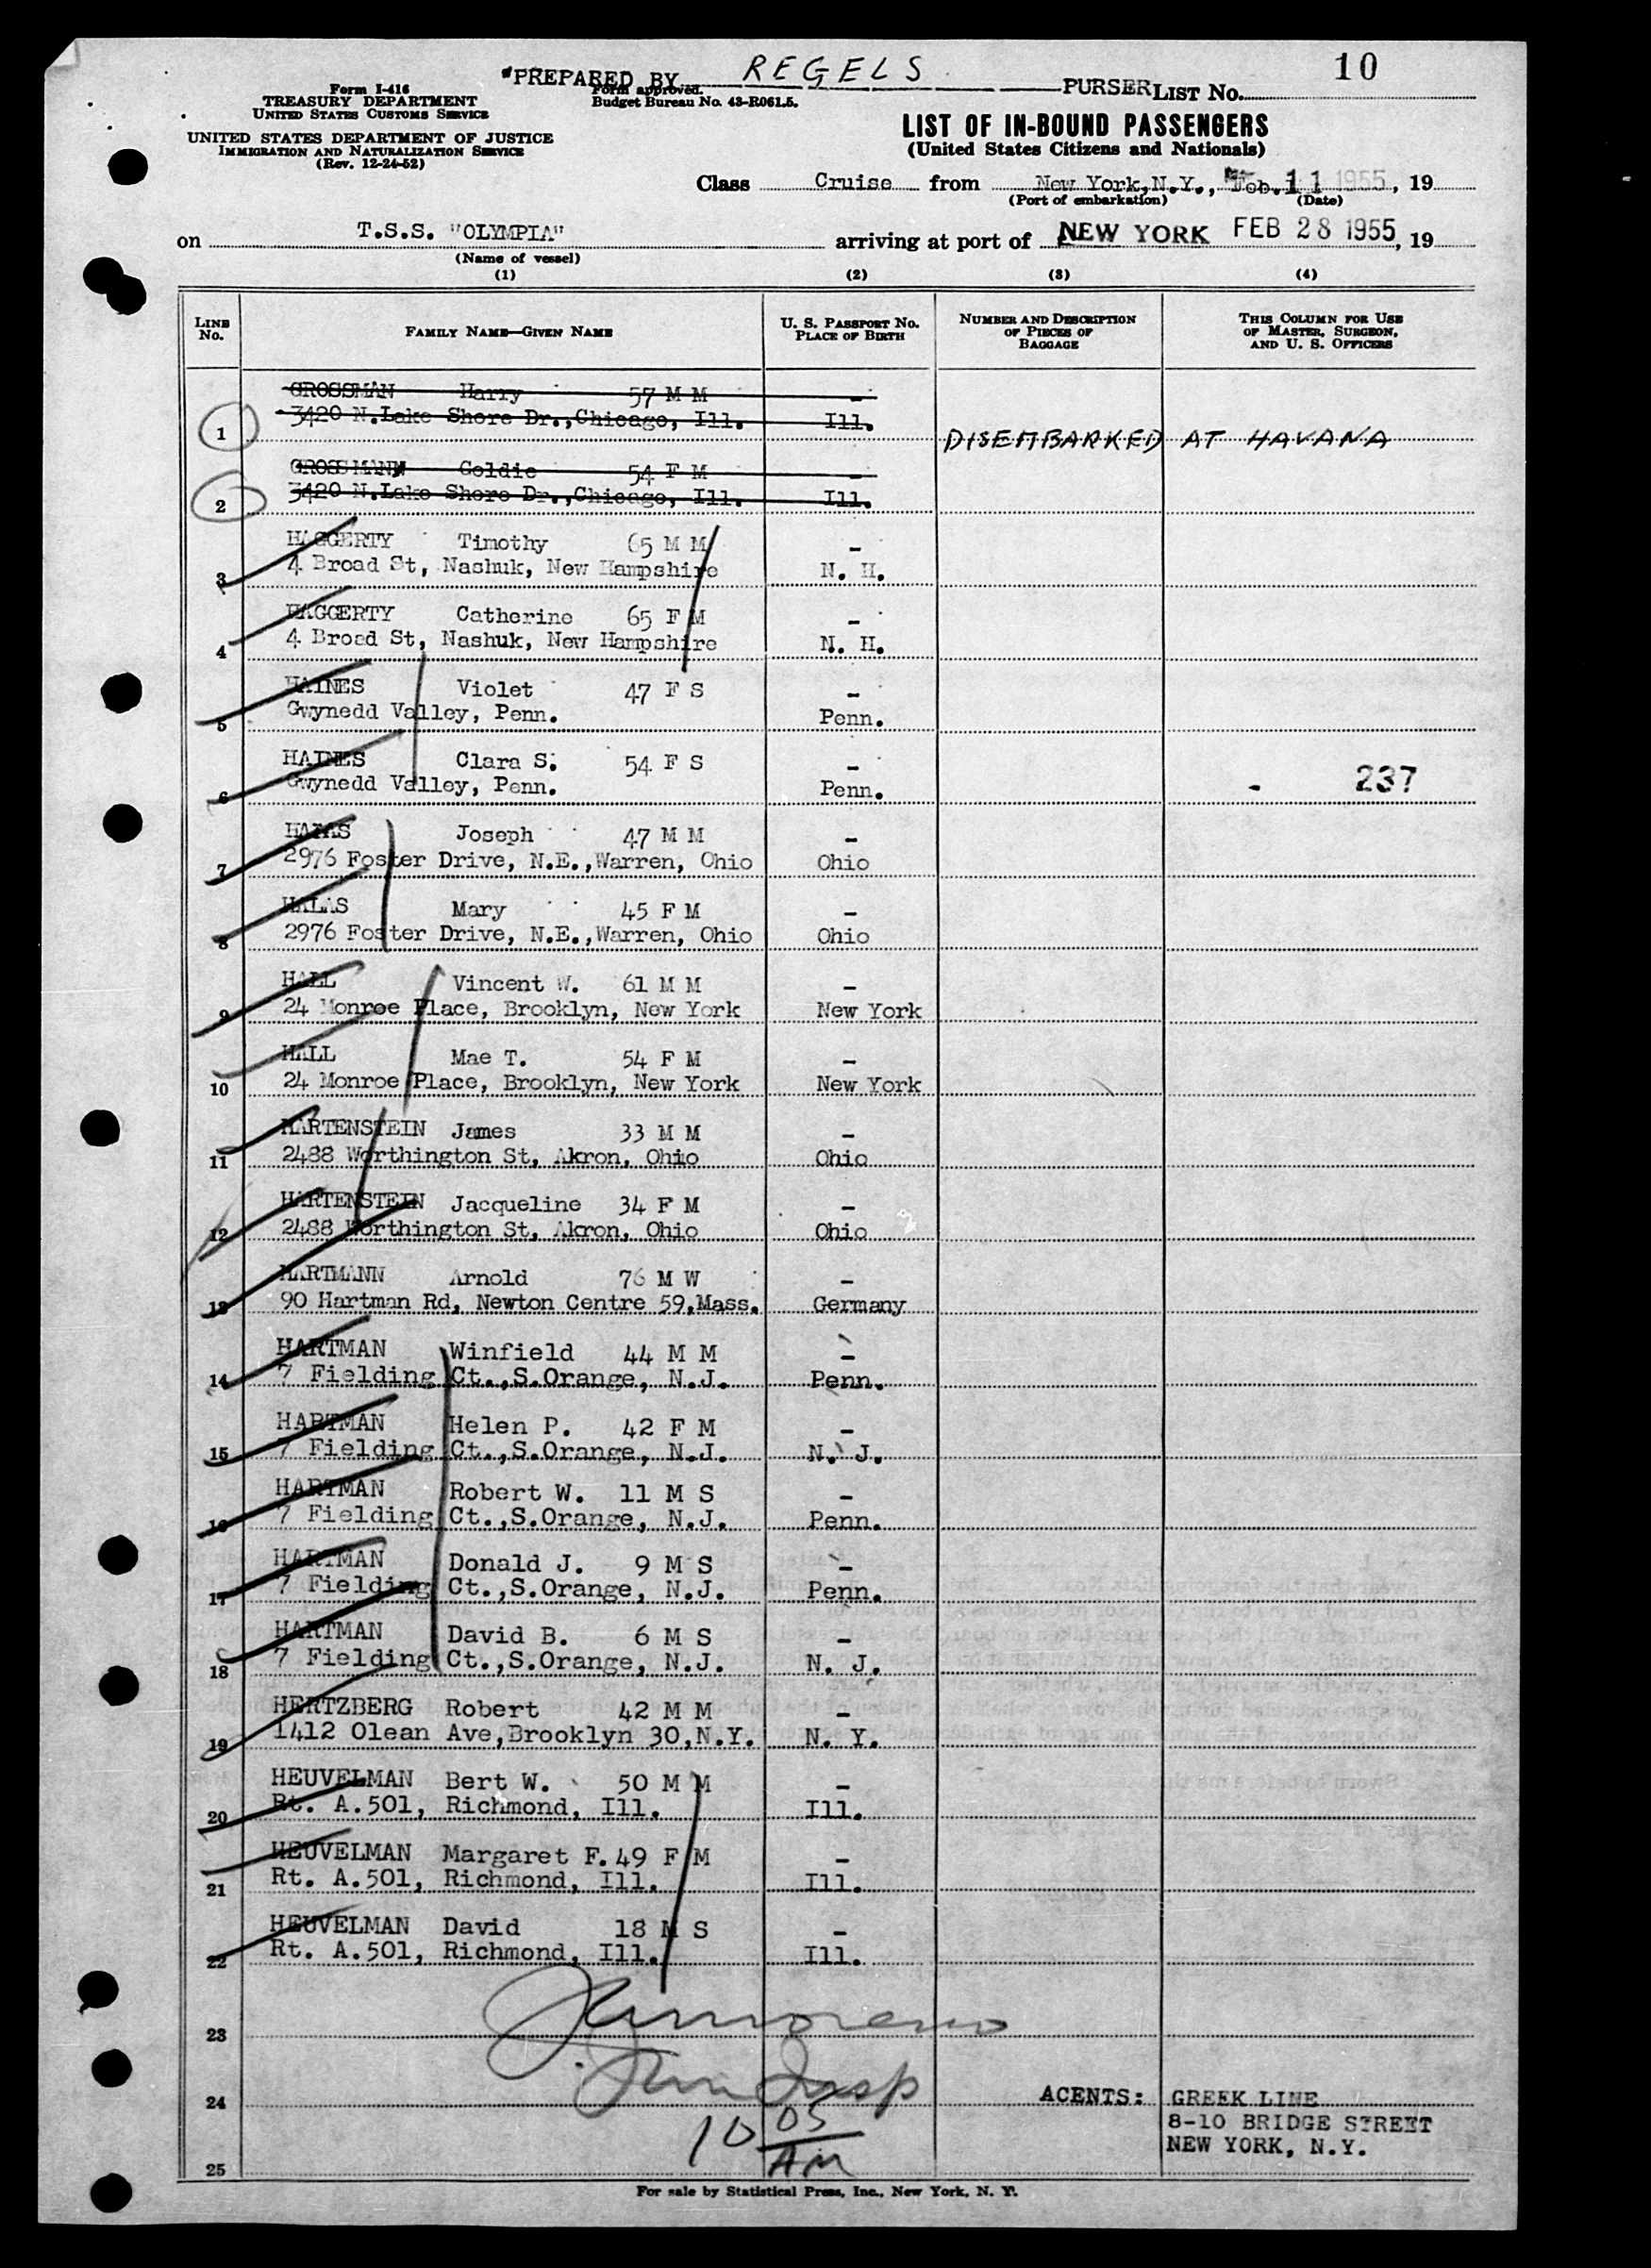 10
"PREPARED BY REGELS PURSER LIST No.
Form I-416
TREASURY DEPARTMENT
UNITED STATES CUSTOMS SERVICE
Form approved.
Budget Bureau No. 43-R061.5.
UNITED STATES DEPARTMENT OF JUSTICE
IMMIGRATION AND NATURALIZATION SERVICE
(Rev. 12-24-52)
LIST OF IN-BOUND PASSENGERS
(United States Citizens and Nationals)
Class Cruise from New York,N.Y., Feb. 11 1955, 19
(Port of embarkation) (Date)
on T.S.S. "OLYMPIA" arriving at port of NEW YORK FEB 28 1955, 19
(Name of vessel)
(1) (2) (3) (4)
LINE No. FAMILY NAME—GIVEN NAME U. S. PASSPORT NO. PLACE OF BIRTH NUMBER AND DESCRIPTION OF PIECES OF BAGGAGE THIS COLUMN FOR USE OF MASTER, SURGEON, AND U. S. OFFICERS
GROSSMAN Harry 57 M M -
3420 N.Lake Shore Dr.,Chicago, Ill. Ill.
1 DISEMBARKED AT HAVANA
GROSSMANN Goldie 54 F M -
3420 N.Lake Shore Dr.,Chicago, Ill. Ill.
2
HAGGERTY Timothy 65 M M -
3 4 Broad St, Nashuk, New Hampshire N. H.
HAGGERTY Catherine 65 F M -
4 4 Broad St, Nashuk, New Hampshire N. H.
HAINES Violet 47 F S -
5 Gwynedd Valley, Penn. Penn.
HAINES Clara S. 54 F S -
6 Gwynedd Valley, Penn. Penn. - 237
HALAS Joseph 47 M M -
7 2976 Foster Drive, N.E.,Warren, Ohio Ohio
HALAS Mary 45 F M -
8 2976 Foster Drive, N.E.,Warren, Ohio Ohio
HALL Vincent W. 61 M M -
9 24 Monroe Place, Brooklyn, New York New York
HALL Mae T. 54 F M -
10 24 Monroe Place, Brooklyn, New York New York
HARTENSTEIN James 33 M M -
11 2488 Worthington St, Akron, Ohio Ohio
HARTENSTEIN Jacqueline 34 F M -
12 2488 Worthington St, Akron, Ohio Ohio
HARTMANN Arnold 76 M W -
13 90 Hartman Rd, Newton Centre 59,Mass. Germany
HARTMAN Winfield 44 M M -
14 7 Fielding Ct.,S.Orange, N.J. Penn.
HARTMAN Helen P. 42 F M -
15 7 Fielding Ct.,S.Orange, N.J. N. J.
HARTMAN Robert W. 11 M S -
16 7 Fielding Ct.,S.Orange, N.J. Penn.
HARTMAN Donald J. 9 M S -
17 7 Fielding Ct.,S.Orange, N.J. Penn.
HARTMAN David B. 6 M S -
18 7 Fielding Ct.,S.Orange, N.J. N. J.
HERTZBERG Robert 42 M M -
19 1412 Olean Ave,Brooklyn 30,N.Y. N. Y.
HEUVELMAN Bert W. 50 M M -
20 Rt. A.501, Richmond, Ill. Ill.
HEUVELMAN Margaret F. 49 F M -
21 Rt. A.501, Richmond, Ill. Ill.
HEUVELMAN David 18 M S -
22 Rt. A.501, Richmond, Ill. Ill.
23
24 Insp AGENTS: GREEK LINE
8-10 BRIDGE STREET
NEW YORK, N.Y.
10 05
AM
25
For sale by Statistical Press, Inc., New York, N. Y.